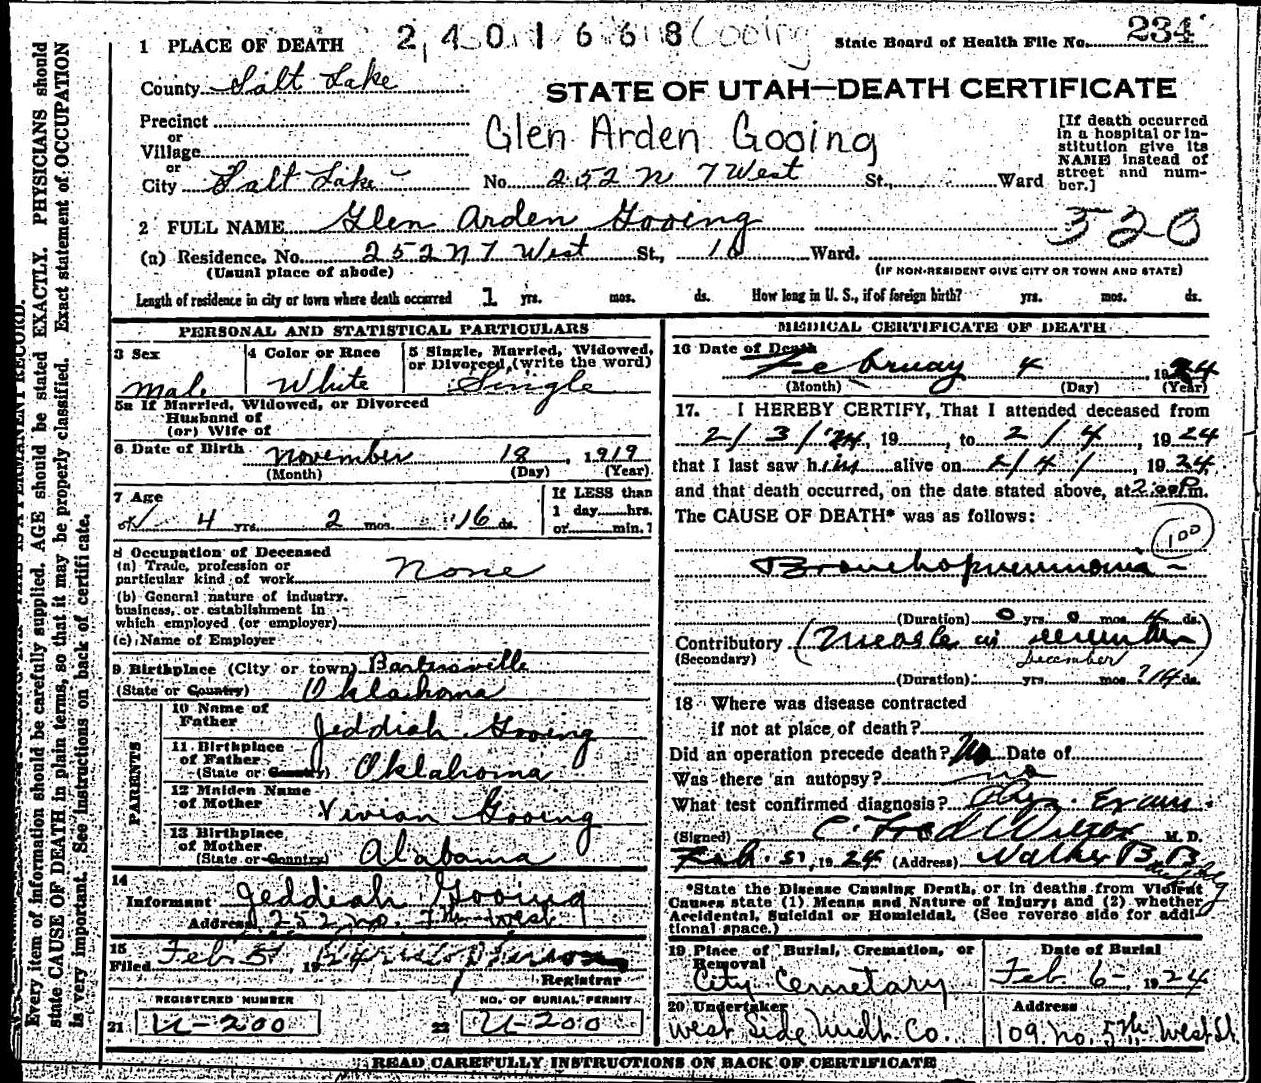 Every item of information should be carefully supplied. AGE should be stated EXACTLY. PHYSICIANS should
state CAUSE OF DEATH in plain terms, so that it may be properly classified. Exact statement of OCCUPATION
is very important. See instructions on back of certificate.
2401668 Gooing
State Board of Health File No. 234
1 PLACE OF DEATH
County Salt Lake
STATE OF UTAH—DEATH CERTIFICATE
Precinct
or
Village
or
City Salt Lake
Glen Arden Gooing
No. 252 N 7 West St., Ward
[If death occurred
in a hospital or in-
stitution give its
NAME instead of
street and num-
ber.]
2 FULL NAME Glen Arden Gooing
520
(a) Residence. No. 252 N 7 West St., 10 Ward.
(Usual place of abode)
(IF NON-RESIDENT GIVE CITY OR TOWN AND STATE)
Length of residence in city or town where death occurred 1 yrs. mos. ds. How long in U. S., if of foreign birth? yrs. mos. ds.
PERSONAL AND STATISTICAL PARTICULARS
3 Sex
Male
4 Color or Race
White
5 Single, Married, Widowed,
or Divorced, (write the word)
Single
5a If Married, Widowed, or Divorced
Husband of
(or) Wife of
6 Date of Birth November 18, 1919
(Month) (Day) (Year)
7 Age
4 yrs. 2 mos. 16 ds.
If LESS than
1 day hrs.
or min. ?
8 Occupation of Deceased
(a) Trade, profession or
particular kind of work None
(b) General nature of industry,
business, or establishment in
which employed (or employer)
(c) Name of Employer
9 Birthplace (City or town) Bartlesville
(State or Country) Oklahoma
PARENTS
10 Name of
Father Jeddiah Gooing
11 Birthplace
of Father
(State or Country) Oklahoma
12 Maiden Name
of Mother Vivian Gooing
13 Birthplace
of Mother
(State or Country) Alabama
14
Informant Jeddiah Gooing
Address 252 no. 7th West
15
Filed Feb 5, 19
Registrar
REGISTERED NUMBER
21 U-200
NO. OF BURIAL PERMIT
22 U-200
MEDICAL CERTIFICATE OF DEATH
16 Date of Death
February 4, 1924
(Month) (Day) (Year)
17. I HEREBY CERTIFY, That I attended deceased from
2/3/24, 19, to 2/4, 1924
that I last saw him alive on 2/4/, 1924
and that death occurred, on the date stated above, at 2:00 P m.
The CAUSE OF DEATH* was as follows:
100
Bronchopneumonia
(Duration) 0 yrs. 0 mos. 4 ds.
Contributory (Measles in
(Secondary) December
(Duration) yrs. mos. ?14 ds.
18 Where was disease contracted
if not at place of death?
Did an operation precede death? No Date of
Was there an autopsy? no
What test confirmed diagnosis? Phys. Exam.
(Signed) C. Fred Wilcox M. D.
Feb. 5, 1924 (Address) Walker B B
*State the Disease Causing Death, or in deaths from Violent
Causes state (1) Means and Nature of Injury; and (2) whether
Accidental, Suicidal or Homicidal. (See reverse side for addi-
tional space.)
19 Place of Burial, Cremation, or
Removal
City Cemetary
Date of Burial
Feb. 6-, 1924
20 Undertaker
West Side Undt. Co.
Address
109 no. 5th West St.
READ CAREFULLY INSTRUCTIONS ON BACK OF CERTIFICATE